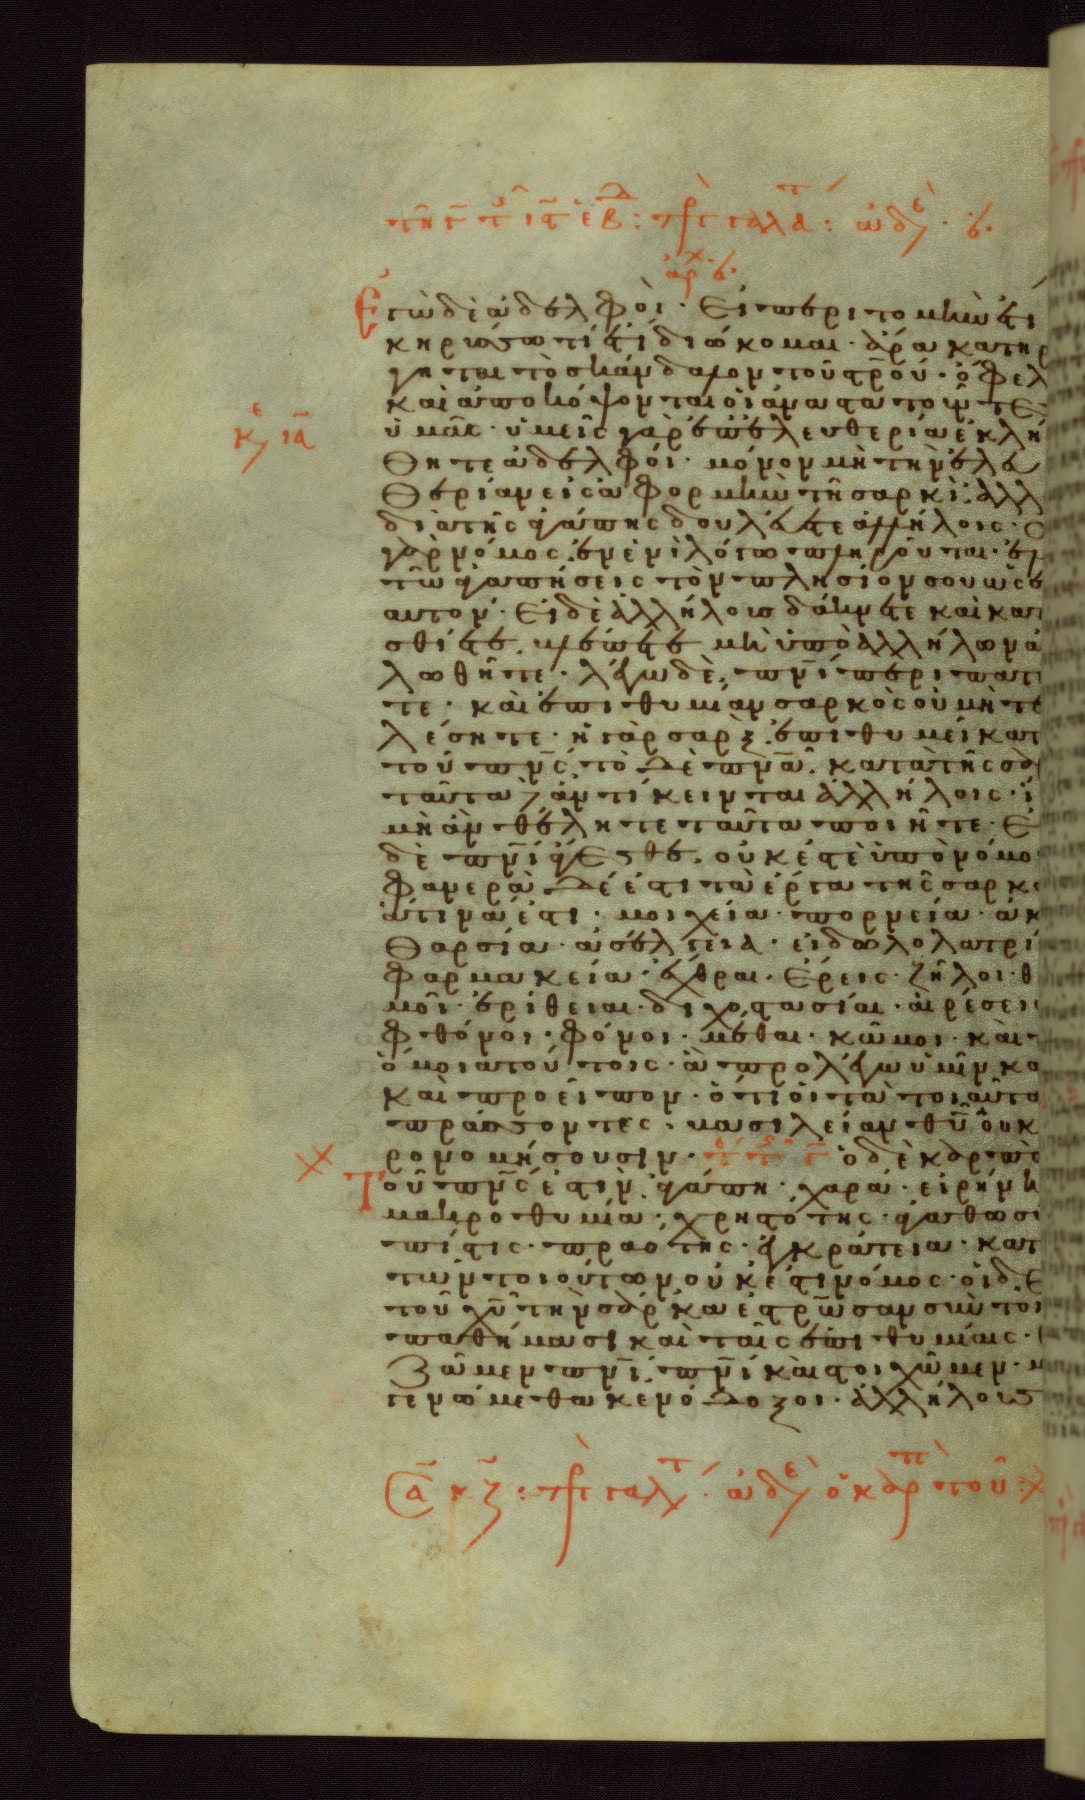 Ἐγὼ δὲ ἀδελφοὶ· εἰ περιτομὴν ἔτι
κηρύσσω τί ἔτι διώκομαι· ἄρα κατήρ
γηται τὸ σκάνδαλον τοῦ σ̅ρ̅ού· ὄφελ
καὶ ἀποκόψονται οἱ ἀναστατοῦντε
κε̅φ ια̅
ὑμᾶς· ὑμεῖς γὰρ ἐπ' ἐλευθερία ἐκλή
θητε ἀδελφοί· μόνον μὴ τὴν ἐλευ
θερίαν εἰς ἀφορμὴν τῆ σαρκὶ· ἀλλ
διὰ τῆς ἀγάπης δουλεύετε ἀλλήλοις·
γὰρ νόμος· ἐν ἑνὶ λόγω πληροῦται· ἐν
τῶ ἀγαπήσεις τὸν πλησίον σου ὡς ἑ
αυτόν· Εἰ δὲ ἀλλήλους δάκνετε καὶ κατ
εσθίετε· βλέπετε μὴ ὑπὸ ἀλλήλων ἀ
λωθῆτε· λέγω δὲ, π̅ν̅ι περιπατ
τε· καὶ ἐπιθυμίαν σαρκὸς οὐ μὴ τε
λέσητε· ἡ γὰρ σαρξ ἐπιθυμεῖ κατ
τοῦ π̅ν̅ς· τὸ δὲ π̅ν̅α· κατὰ τῆς σαρ
ταῦτα δὲ ἀντίκεινται ἀλλήλοις· ἵ
μὴ ἂν θέλητε ταῦτα ποιῆτε· Εἰ
δὲ π̅ν̅ι ἄγεσθε· οὐκ ἐστὲ ὑπὸ νόμο
φανερὰ δέ ἐστι τὰ ἔργα τῆς σαρκο
ἅτινά ἐστι· μοιχεία· πορνεία· ἀκ
θαρσία· ἀσέλγεια· εἰδωλολατρί
φαρμακεία· ἔχθραι· ἔρεις· ζῆλοι· θ
μοῖ· ἐρίθειαι· διχοστασίαι· αἱρέσεις
φθόνοι· φόνοι· μέθαι· κῶμοι· καὶ τ
ὅμοια τούτοις· ἃ προλέγω ὑμῖν κα
καὶ προεῖπον· ὅτι οἱ τὰ τοιαῦτα
πράσσοντες· βασιλείαν θ̅υ̅ οὐ κ
ρονομήσουσιν· ὁ δὲ καρπὸς
Τοῦ π̅ν̅ς ἐστὶν· ἀγάπη· χαρά· εἰρήνη
μακροθυμία· χρηστότης· ἀγαθωσύ
πίστις· πραότης· ἐγκράτεια· κατ
τῶν τοιούτων οὐκ ἔστι νόμος· οἱ δὲ
τοῦ χ̅υ̅ τὴν σάρκα ἐσ̅ρ̅ωσαν σὺν τοῖ
παθήμασι καὶ ταῖς ἐπιθυμίαις·
Ζῶμεν π̅ν̅ι· π̅ν̅ι καὶ στοιχῶμεν· μ
γενώμεθα κενόδοξοι· ἀλλήλους